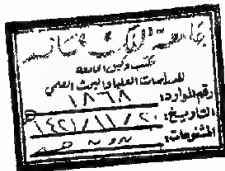 جامعة الملك
مكتب وكيل الجامعة
للدراسات العليا والبحث العلمي
رقم الوارد: ١٨٦٨
التاريخ: ١٤٢١/١١/٢٠
المشفوعات: بدون